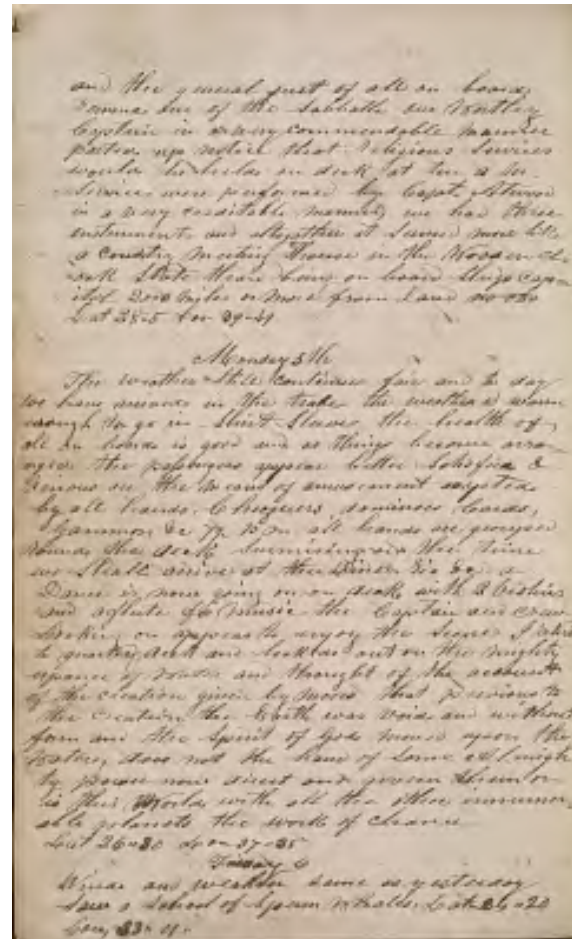 and the general part of all on board
of the Sabbath our Worthy
Captain in a very commendable manner
posted up notice that religious Services
would be held on deck at ten a m
Services were performed by Capt
in a very creditable manner, we had three
instruments and altogether it Seemed more like
a country meeting House in the
State than being on board Ship
2000 miles or more from Land
Lat 28-5 Lon 39-
Monday 5th
The weather Still continues fair and to day
we have in the trades the weather warm
enough to go in Shirt Sleeves the health of
all on board is good and as things become
the passengers appear better Satisfied &
the means of amusement adopted
by all hands, dominoes Cards,
Gammon &c 7 P M all hands are grouped
round the deck the time
we Shall arrive at the &c &c a
Dance is now going on on deck with 2 violins
and a flute for music the Captain and crew
looking on appear to enjoy the Scene I
to quarter deck and looked out on the mighty
expanse of water and thought of the account
of the creation given by moses that previous to
the creation the Earth was void and without
form and the Spirit of God moved upon the
waters, does not the hand of Some almigh
ty power now direct and govern them or
is this World with all the other innumer
able planets the work of chance
Lat 26-30 Lon 37-35
Tuesday 6
Winds and weather Same as yesterday
Saw a School of Sperm Whales. Lat 26-20
Lon 33-